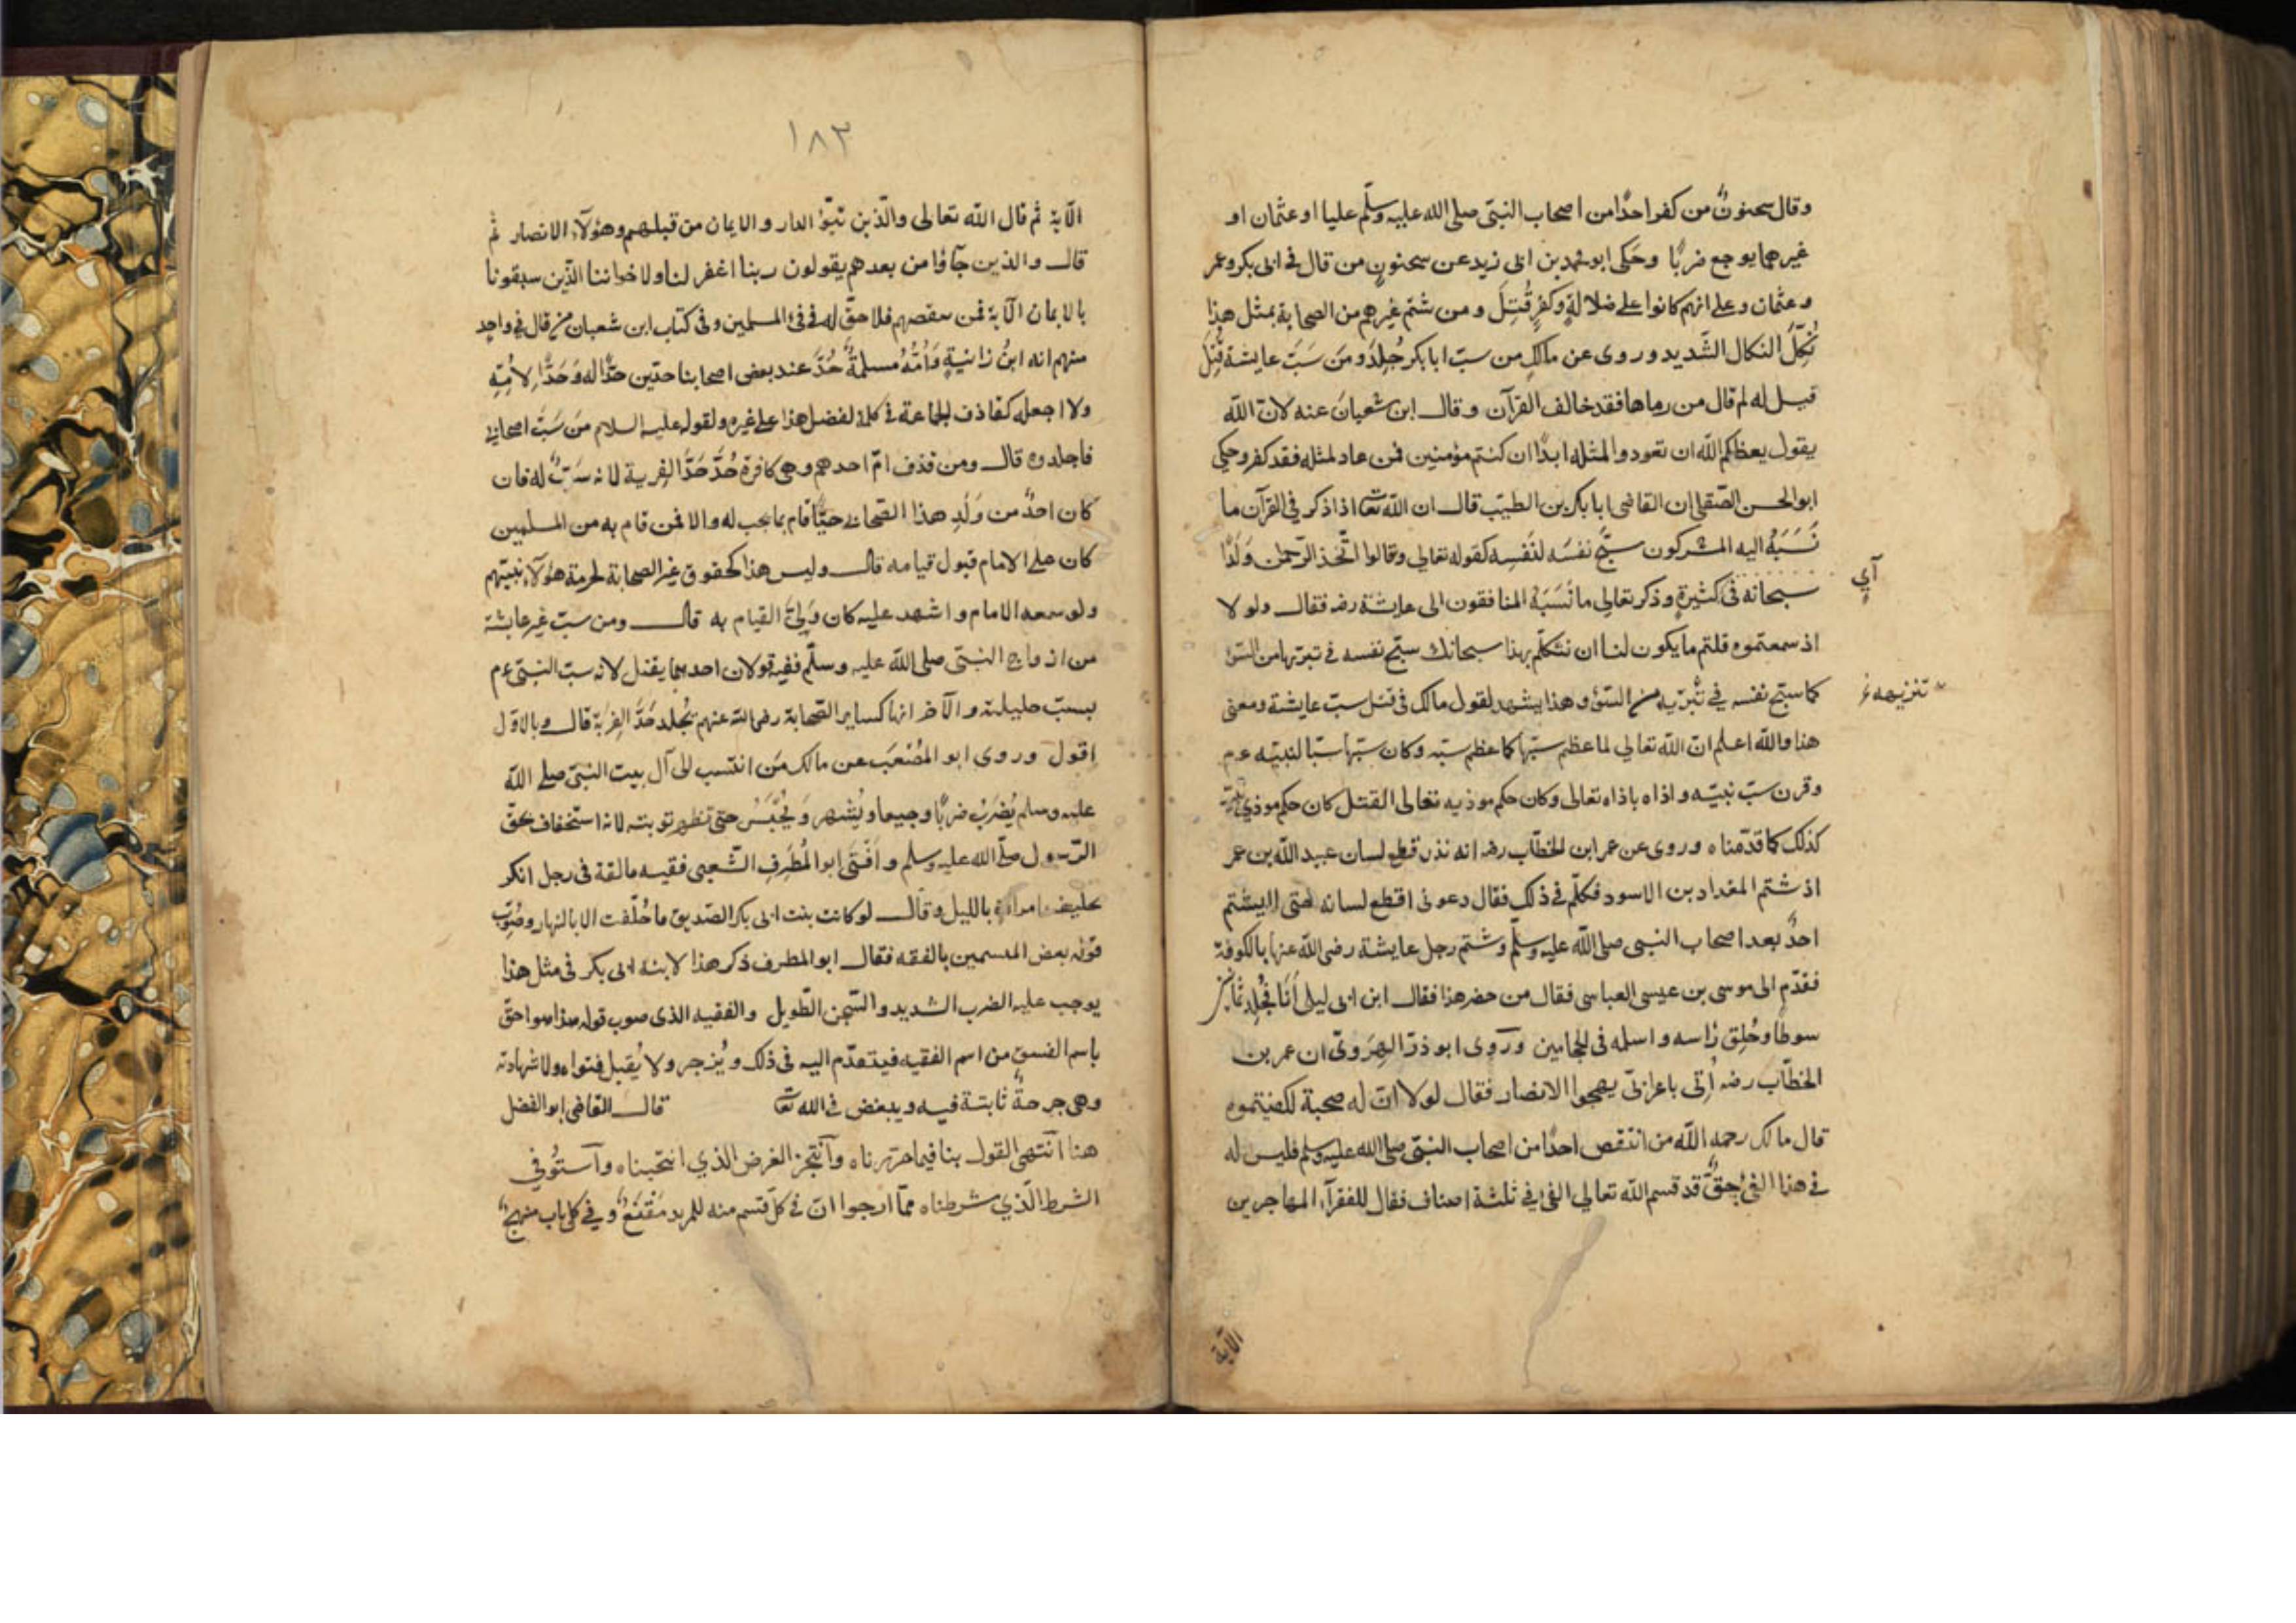 وقال سحنونٌ من كفر احدًا من اصحاب النبىّ صلى الله عليه وسلّم عليا او عثمان او
غيرهما يوجع ضربًا وحَكى ابو محمد بن ابى زيد عن سحنونٍ من قال فى ابى بكر وعمر
وعثمان وعلى انهم كانوا على ضلالةٍ وكفرٍ قُتِلَ ومن شتم غيرهم من الصحابة بمثل هذا
نُكِّلَ النكال الشّديد وروى عن مالكٍ من سبّ ابا بكر جُلِدَ ومَن سَبَّ عايشة قُتِلَ
قيل له لم قال من رماها فقد خالف القرآن وقال ابن شعبانَ عنه لانّ الله
يقول يعظكم الله ان تعودوا لمثله ابدًا ان كنتم مؤمنين فمن عاد لمثله فقد كفر وحكى
ابو الحسن الصّقلى ان القاضى ابا بكر بن الطيّب قال ان الله تعا اذا ذكر فى القرآن ما
نَسَبَهُ اليه المشركون سبّح نفسَه لنَفسِه كقوله تعالي وقالوا اتّخذ الرّحمن وَلَدًا
سبحانه فى كثيرةٍ وذكر تعالي ما نَسَبَهُ المنافقون الى عايشة رضه فقال ولو لا
آيٍ
اذ سمعتموه قلتم ما يكون لنا ان نتكلّم بهذا سبحانك سبّح نفسه فى تبرّيها من السّوء
كما سبّح نفسه في تبرّيه من السّوء وهذا يشهد لقول مالك فى قتل سبّ عايشة ومعنى
تنزيهه
هذا والله اعلم انّ الله تعالي لما عظم سبّها كما عظم سبّه وكان سبّها سبّا لنبيّه عم
وقرن سبّ نبيّه واذاه باذاه تعالى وكان حكم موذيه تعالى القتل كان حكم موذي نبيّه
كذلك كما قدّمناه وروى عن عمر ابن الخطّاب رضه انه نذر قطع لسان عبيد الله بن عمر
اذ شتم المقداد بن الاسود فكلّم فى ذلك فقال دعونى اقطع لسانه حتى لا يشتم
احدٌ بعد اصحاب النبى صلى الله عليه وسلّم وشتم رجل عايشة رضى الله عنها بالكوفة
فقدّم الى موسى بن عيسى العباسى فقال من حضر هذا فقال ابن ابى ليلى اَنَا فجُلِد ثمانين
سوطًا وحُلِق رأسه واسلمه فى الحجامين ورَوى ابو ذرّ الهَرَوىّ ان عمر بن
الخطّاب رضه اُتى باعرابىّ يهجوا الانصار فقال لولا انّ له صحبة لكفيتموه
قال مالك رحمه الله من انتقص احدًا من اصحاب النبىّ صلى الله عليه وسلم فليس له
فى هذا الفئ حقٌّ قد قسم الله تعالي الفئ في ثلثة اصناف فقال للفقرآء المهاجرين
الآية
١٨٣
الآية ثم قال الله تعالى والّذين تبوّؤا الدار والايمان من قبلهم وهؤلآء الانصار ثم
قال والذين جآؤا من بعدهم يقولون ربنا اغفر لنا ولاخواننا الذين سبقونا
بالايمان الآية فمن تنقصهم فلا حقّ له فى فئ المسلمين وفى كتاب ابن شعبان من قال فى واحدٍ
منهم انه ابنُ زانيةٍ وَاُمُّهُ مسلمةٌ حُدَّ عند بعض اصحابنا حدّين حدًّا له وَحَدًّا لِاُمّهِ
ولا اجعله كقاذف الجماعة فى كلمة لفضل هذا على غيره ولقوله عليه السلام مَن سَبَّ اصحابى
فاجلدوه قال ومن قذف امّ احدهم وهى كافرة حُدَّ حَدَّ الفِرية لانه سَبٌّ له فان
كان احدٌ من وَلَدِ هذا الصّحابى حيًّا قام بما يجب له والا فمن قام به من المسلمين
كان على الامام قبول قيامه قال وليس هذا كحقوق غير الصحابة لحرمة هؤلآء بنبيّهم
ولو سمعه الامام واشهد عليه كان وَلِيَّ القيام به قال ومن سبّ غير عايشة
من ازواج النبىّ صلى الله عليه وسلّم ففيه قولان احدهما يقتل لانه سبّ النبىّ عم
بسبّ حليلته والآخر انها كساير الصّحابة رضى الله عنهم يُجلد حَدَّ الفِرْية قال وبالاوّل
اقول وروى ابو المُصْعَب عن مالك مَن انتسب الى آل بيت النبىّ صلى الله
عليه وسلم يُضرَبُ ضربًا وجيعا ويُشهر وَيُحْبَسُ حتى تظهر توبته لانه استخفاف بحقّ
الرّسول صلّى الله عليه وسلم وافَتَى ابو المُطَرِفِ الشّعبى فقيه مالقة فى رجل انكر
تحليف امراة بالليل وقال لو كانت بنت ابى بكر الصّديق ما حُلّفت الا بالنهار وصُوّب
قوله بعض المتسمين بالفقه فقال ابو المطرف ذكر هذا لابنة ابى بكر فى مثل هذا
يوجب عليه الضرب الشديد والسّجن الطّويل والفقيه الذى صوب قوله هذا هو احقّ
باسم الفسق من اسم الفقيه فيتقدّم اليه فى ذلك ويُزجر ولا يُقبل فتواه ولا شهادته
وهى جرحةٌ ثابتة فيه ويبغض فى الله تعا قال القاضى ابو الفضل
هنا اَنتهى القول بنا فيما حرّرناه واَنتجز الغرض الذي انتحيناه واَستُوفي
الشرط الّذي شرطناه ممّا ارجوا انّ فى كلّ قسم منه للمريد مَقْنَعٌ وفي كل باب منهجٌ